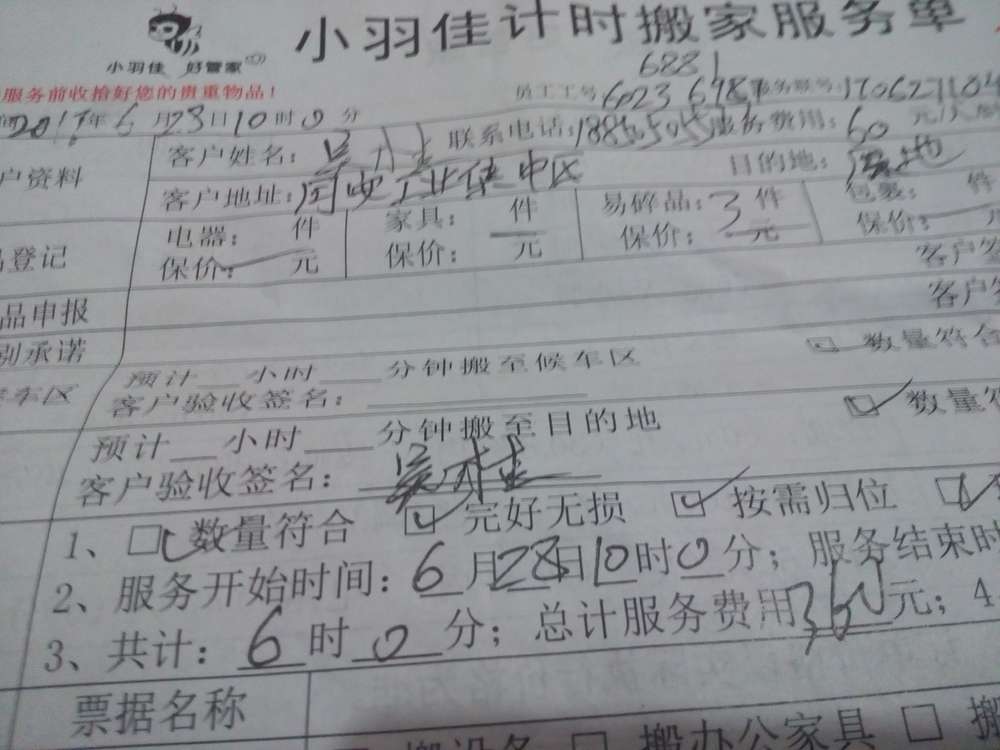 小羽佳计时搬家服务单
小羽佳 好管家
服务前收拾好您的贵重物品！
6881
员工工号 6023
年6月23日10时0分
客户姓名： 联系电话： 服务费用：60元/人
户资料
客户地址： 工业 中区 目的地：
电器： 件 家具： 件 易碎品：3件 包裹： 件
登记
保价： 元 保价： 元 保价： 元 保价： 元
客户签
品申报
客户签
别承诺
数量符合
车区
预计 小时 分钟搬至候车区
客户验收签名：
数量符
预计 小时 分钟搬至目的地
客户验收签名：
1、 数量符合 完好无损 按需归位
2、服务开始时间：6月28日10时0分；服务结束时
3、共计：6时0分；总计服务费用360元；4
票据名称
搬设备 搬办公家具 搬